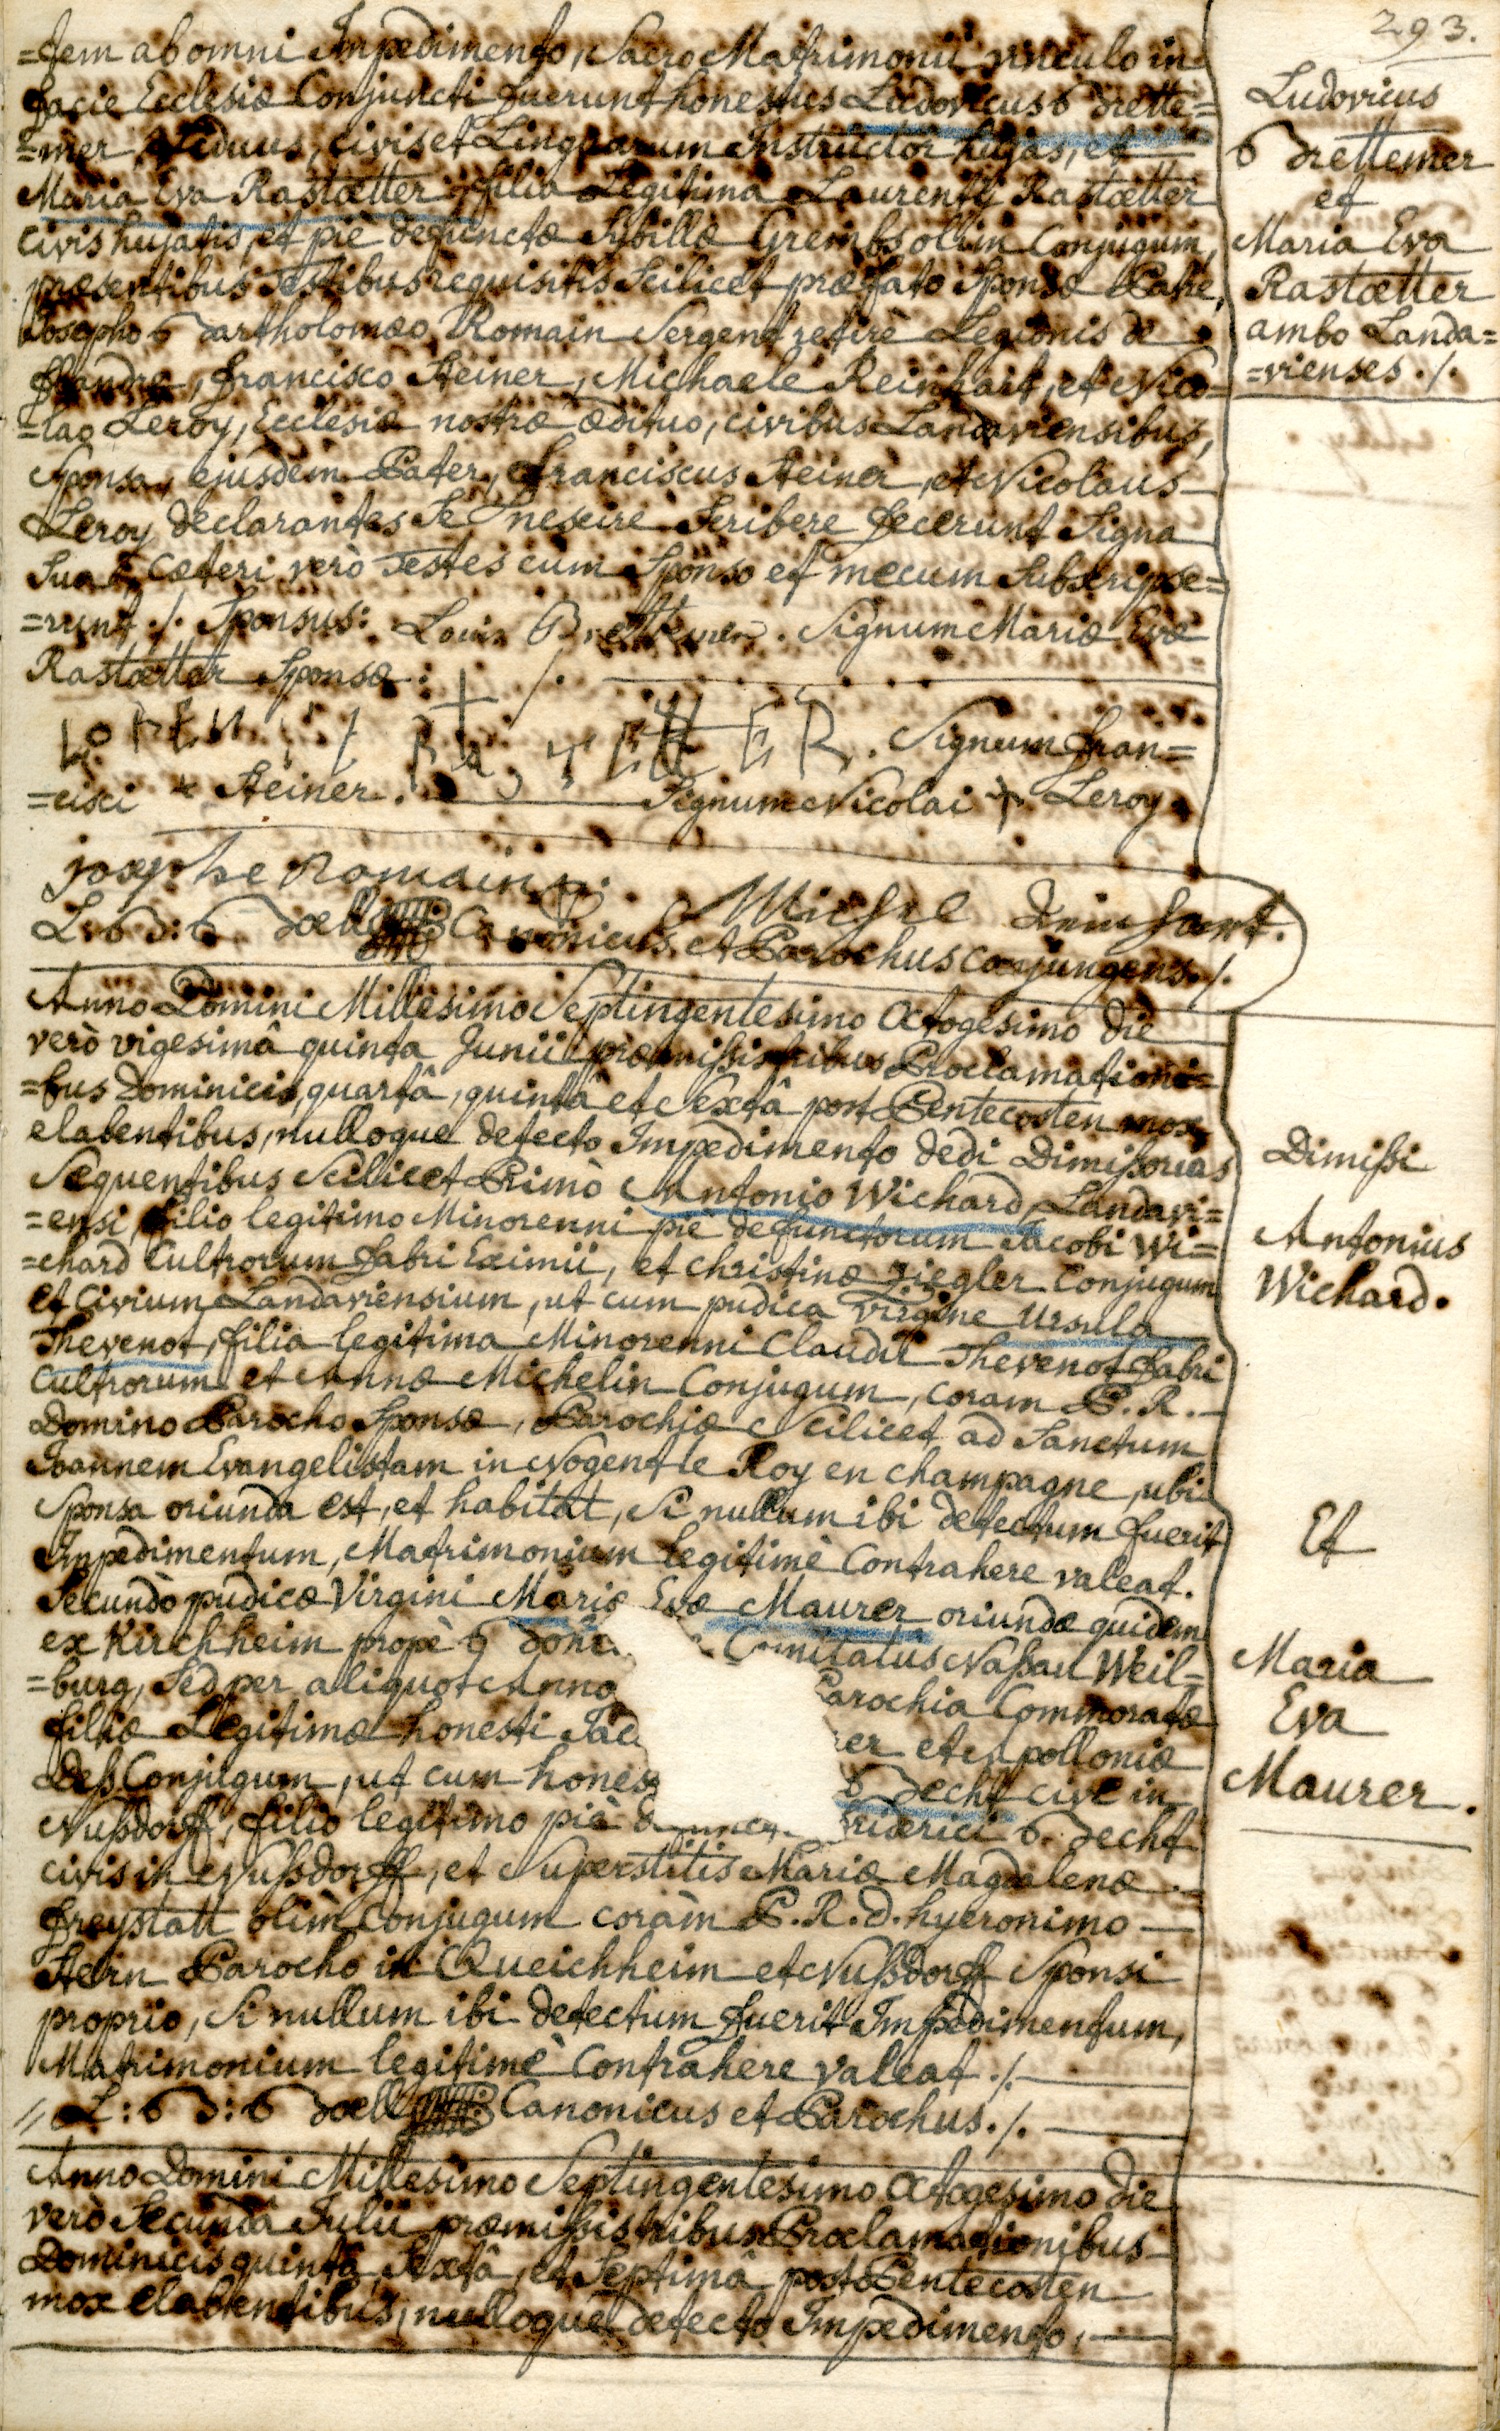 293.
=tem ab omni Impedimento, Sacro Matrimonii vinculo in
facie Ecclesiæ Conjuncti fuerunt honestus Ludovicus Brette=
=mer Viduus, civis et Linguarum Instructor hujas, et
Maria Eva Rastætter filia Legitima Laurentii Rastætter
civis hujatis, et piè defunctæ Sybillæ Grembs olim Conjugum,
præsentibus Testibus requisitis Scilicet præfato Sponsæ Patre,
Josepho Bartholomæo Romain Sergent retirè Legionis de
flandre, francisco Steiner, Michaele Reinhart, et Nico=
=lao Leroy, Ecclesiæ nostræ ædituo, civibus Landaviensibus,
Sponsa, ejusdem Pater, franciscus Steiner, et Nicolaus
Leroy declarantes Se nescire Scribere fecerunt Signa
Sua, Cæteri verò Testes cum Sponso et mecum Subscripse=
=runt ./. Sponsus: Louis Brettemer. Signum Mariæ Evæ
Rastætter Sponsæ: + ./.
LORENS RASTETTER. Signum fran=
=cisci + Steiner. Signum Nicolai + Leroy
josephe Romain
Michel Reinhart.
L: B: Boell Canonicus et Parochus conjungens ./.
Ludovicus
Brettemer
et
Maria Eva
Rastætter
ambo Landa=
=vienses ./.
Anno Domini Millesimo Septingentesimo Octogesimo die
verò vigesimâ quinta Junii præmissis tribus Proclamationi=
=bus Dominicis, quartâ, quintâ et Sextâ post Pentecosten mox
elabentibus, nulloque detecto Impedimento dedi Dimissorias
Sequentibus Scilicet Primò Antonio Wichard, Landavi=
=ensi, filio legitimo Minorenni piè defunctorum Jacobi Wi=
=chard Cultrorum fabri Eximii, et Christinæ Ziegler Conjugum
et Civium Landaviensium, ut cum pudica virgine Ursula
Thevenot, filia legitima Minorenni Claudii Thevenot fabri
Cultrorum et Annæ Michelin Conjugum, coram P. R.
Domino Parocho Sponsæ, Parochiæ Scilicet ad Sanctum
Joannem Evangelistam in Nogent le Roy en champagne, ubi
Sponsa oriunda est, et habitat, Si nullum ibi detectum fuerit
Impedimentum, Matrimonium legitimè Contrahere valeat.
Secundò pudicæ Virgini Mariæ Evæ Maurer oriundæ quidem
ex Kirchheim propè Comitatus Nassau Weil=
=burg, Sed per aliquot Anno Parochia Commoratæ
filiæ Legitimæ honesti et Apolloniæ
Deß Conjugum, ut cum Becht cive in
Nußdorff, filio legitimo piè friderici Becht
civis in Nußdorff, et Superstitis Mariæ Magdalenæ
freystatt olim Conjugum coràm P. R. D. hyeronimo
Stern Parocho in Queichheim et Nußdorff Sponsi
proprio, Si nullum ibi detectum fuerit Impedimentum,
Matrimonium legitimè Contrahere valeat ./.
L: B: Boell Canonicus et Parochus ./.
Dimissi
Antonius
Wichard.
Et
Maria
Eva
Maurer.
Anno Domini Millesimo Septingentesimo Octogesimo die
verò Secundâ Julii præmissis tribus Proclamationibus
Dominicis quintâ, Sextâ, et Septimâ post Pentecosten
mox elabentibus, nulloque detecto Impedimento,